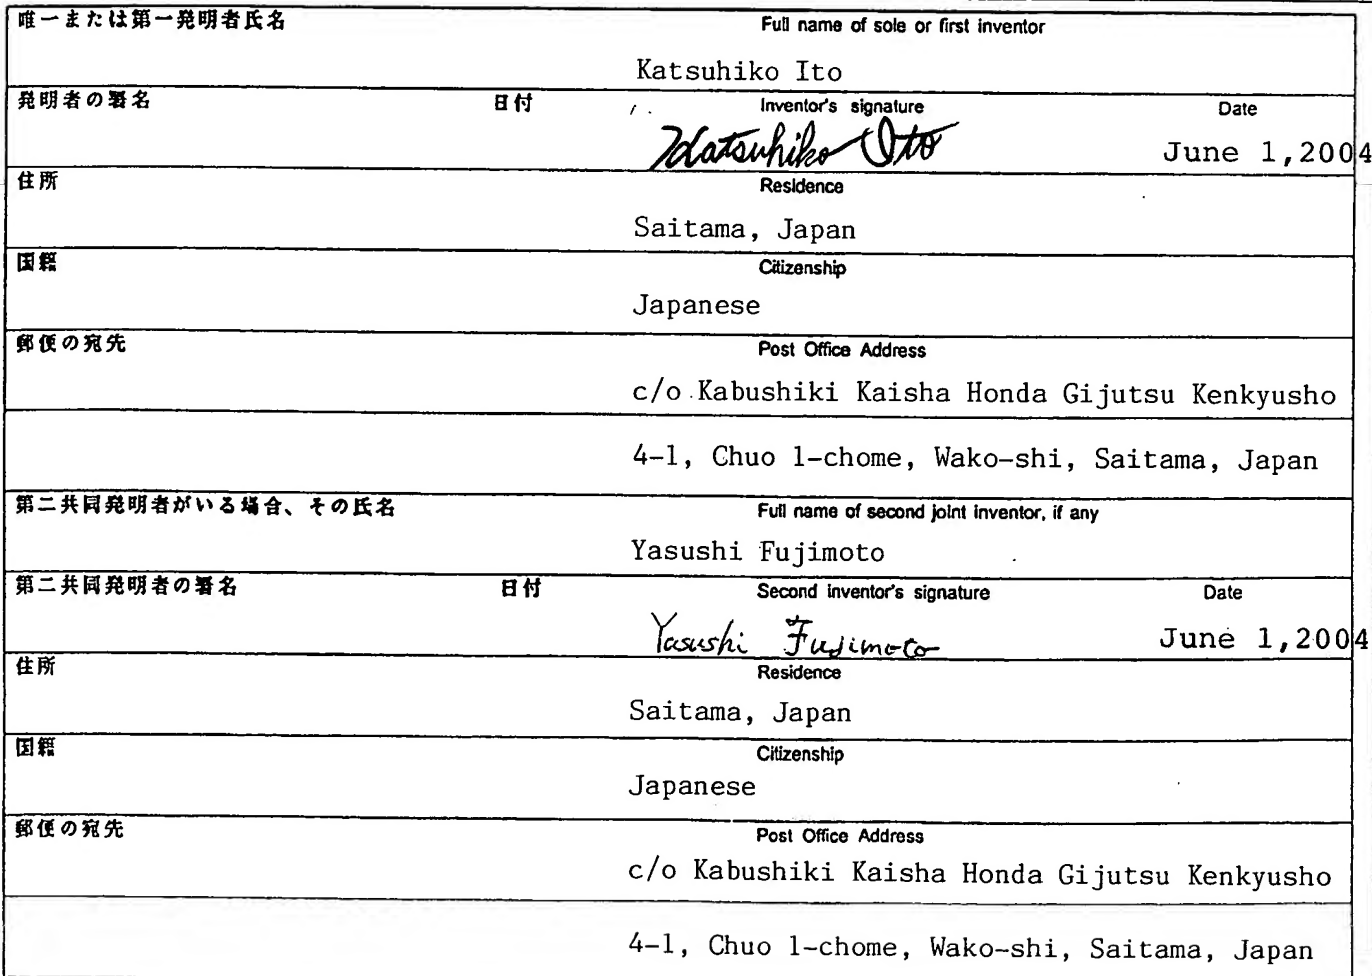 唯一または第一発明者氏名 Full name of sole or first inventor
Katsuhiko Ito
発明者の署名 日付 Inventor's signature Date
Katsuhiko Ito June 1,2004
住所 Residence
Saitama, Japan
国籍 Citizenship
Japanese
郵便の宛先 Post Office Address
c/o Kabushiki Kaisha Honda Gijutsu Kenkyusho
4-1, Chuo 1-chome, Wako-shi, Saitama, Japan
第二共同発明者がいる場合、その氏名 Full name of second joint inventor, if any
Yasushi Fujimoto
第二共同発明者の署名 日付 Second inventor's signature Date
Yasushi Fujimoto June 1,2004
住所 Residence
Saitama, Japan
国籍 Citizenship
Japanese
郵便の宛先 Post Office Address
c/o Kabushiki Kaisha Honda Gijutsu Kenkyusho
4-1, Chuo 1-chome, Wako-shi, Saitama, Japan